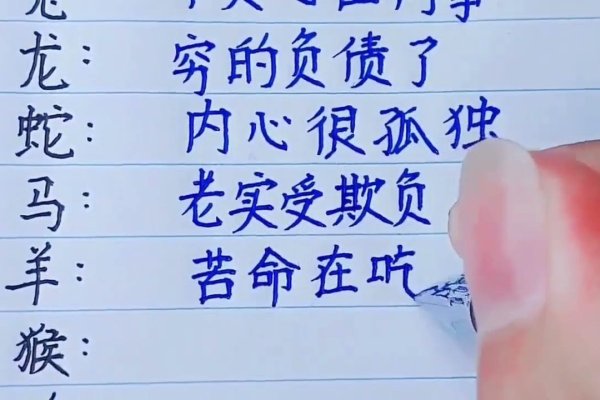 龙：穷的负债了
蛇：内心很孤独
马：老实受欺负
羊：苦命在吃
猴：